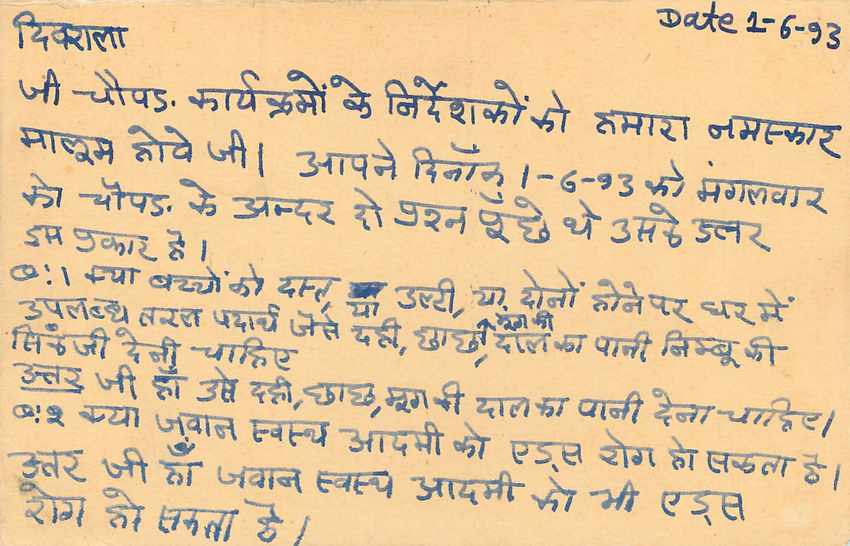 Date 1-6-93
दिवराला
जी चौपड. कार्यक्रमों के निर्देशकों को हमारा नमस्कार
मालूम होवे जी। आपने दिनाँक 1-6-93 को मंगलवार
को चौपड. के अन्दर दो प्रश्न पूँछे थे उसके उत्तर
इस प्रकार है।
Q:1 क्या बच्चों को दस्त, या उल्टी, या दोनों होने पर घर में
उपलब्ध तरल पदार्थ जैसे दही, छाछ, मूंग की दाल का पानी निम्बू की
सिकंजी देनी चाहिए
उत्तर जी हाँ उसे दही, छाछ, मूग की दाल का पानी देना चाहिए।
Q:२ क्या जवान स्वस्थ आदमी को एड्स रोग हो सकता है।
उत्तर जी हाँ जवान स्वस्थ आदमी को भी एड्स
रोग हो सकता है।